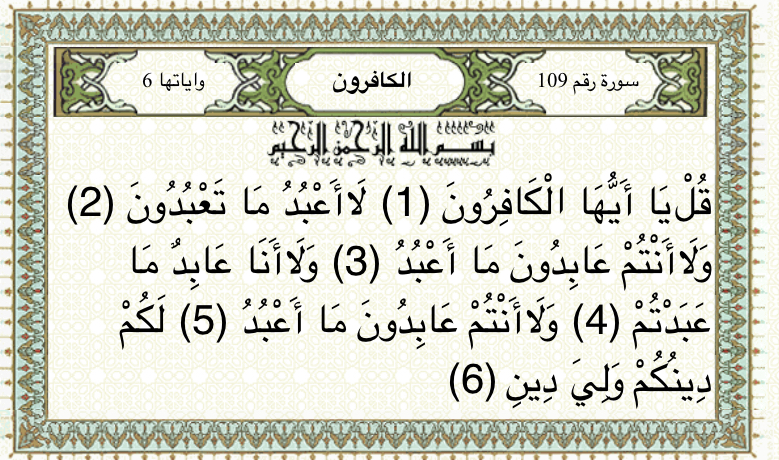 سورة رقم 109 الكافرون واياتها 6
بسم الله الرحمن الرحيم
قُلْ يَا أَيُّهَا الْكَافِرُونَ (1) لَا أَعْبُدُ مَا تَعْبُدُونَ (2)
وَلَا أَنْتُمْ عَابِدُونَ مَا أَعْبُدُ (3) وَلَا أَنَا عَابِدٌ مَا
عَبَدْتُمْ (4) وَلَا أَنْتُمْ عَابِدُونَ مَا أَعْبُدُ (5) لَكُمْ
دِينُكُمْ وَلِيَ دِينِ (6)